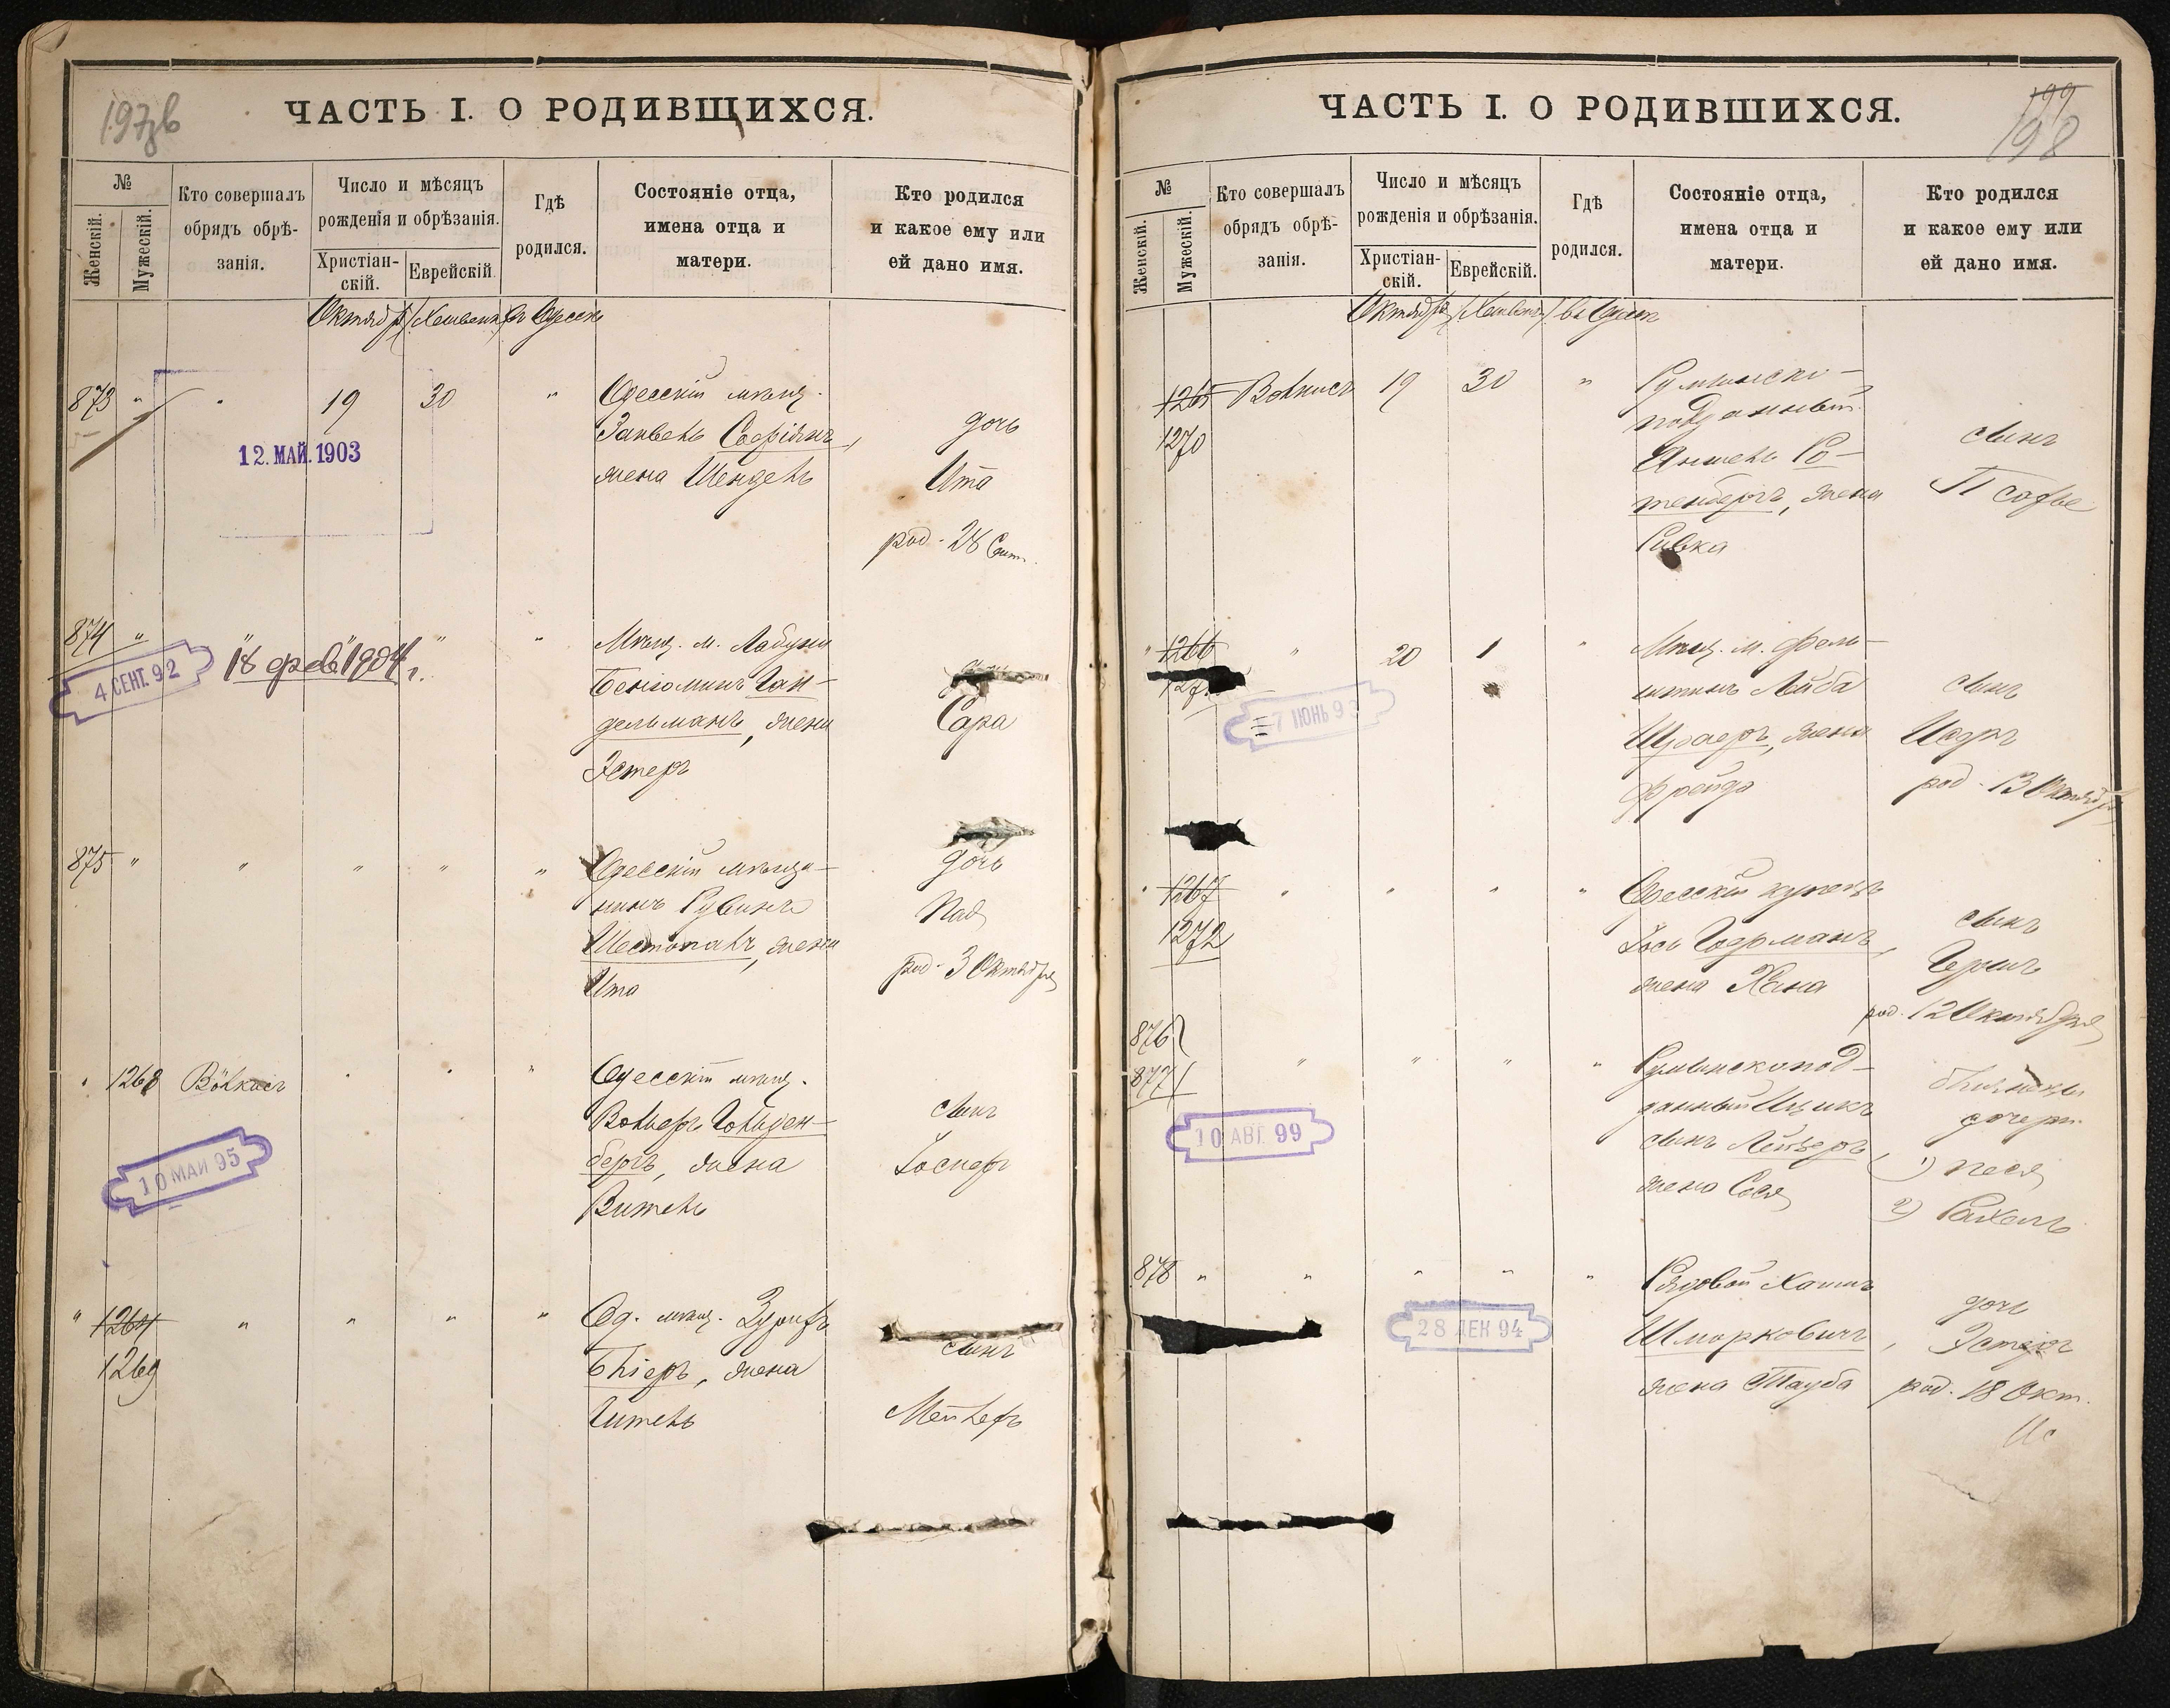 197 об
ЧАСТЬ I. О РОДИВШИХСЯ.
№
Женскій.
Мужескій.
Кто совершалъ
обрядъ обрѣ-
занія.
Число и мѣсяцъ
рожденія и обрѣзанія.
Христіан-
скій.
Еврейскій.
Гдѣ
родился.
Состояніе отца,
имена отца и
матери.
Кто родился
и какое ему или
ей дано имя.
Октября Хешвана въ Одессѣ
873 " " 19 30 " Одесскій мѣщ.
Занвель
жена Шендель
дочь
Ита
род. 28 Сент.
12. МАЙ. 1903
874 " " " " "
18 фев. 1904 г.
4 СЕНТ. 92
Мѣщ. м. Ладужи
Беніоминъ Ган-
дельманъ, жена
Эстеръ
Сара
875 " " " " "
Одесскій мѣща-
нинъ Рувинъ
Шестопалъ, жена
Ита
дочь
род. 3 Октября
" 1268 Волкисъ " " "
Одесскій мѣщ.
Вольфъ Гольден-
бергъ, жена
Витель
сынъ
Іосифъ
10 МАЙ 95
" 1264 " " " "
1269
Од. мѣщ.
жена
Гитель
сынъ
198
ЧАСТЬ I. О РОДИВШИХСЯ.
№
Женскій.
Мужескій.
Кто совершалъ
обрядъ обрѣ-
занія.
Число и мѣсяцъ
рожденія и обрѣзанія.
Христіан-
скій.
Еврейскій.
Гдѣ
родился.
Состояніе отца,
имена отца и
матери.
Кто родился
и какое ему или
ей дано имя.
Октября Хешвана въ Одессѣ
1265 Волкисъ 19 30 "
1270
Румынско-
подданный
Аншель Ро-
тенбергъ, жена
Ривка
сынъ
" 1266 " 20 1 "
7 ІЮНЬ 9
Мѣщ. м. Фель-
штинъ Лейба
жена
Фрейда
сынъ
род. 13 Октября
" 1267 " " " "
1272
Одесскій купецъ
Іось Гофманъ,
жена Хана
сынъ
Гершъ
род. 12 Октября
876
877
" " " "
Румынскопод-
данный Ицикъ
сынъ Лейзеръ
жена Сося
близнецы
дочери
1) Песя
2) Рахель
10 АВГ. 99
878 " " " " "
Рядовой Хаимъ
Шморковичъ,
жена Тауба
дочь
Эстеръ
род. 18 Окт.
28 ДЕК 94